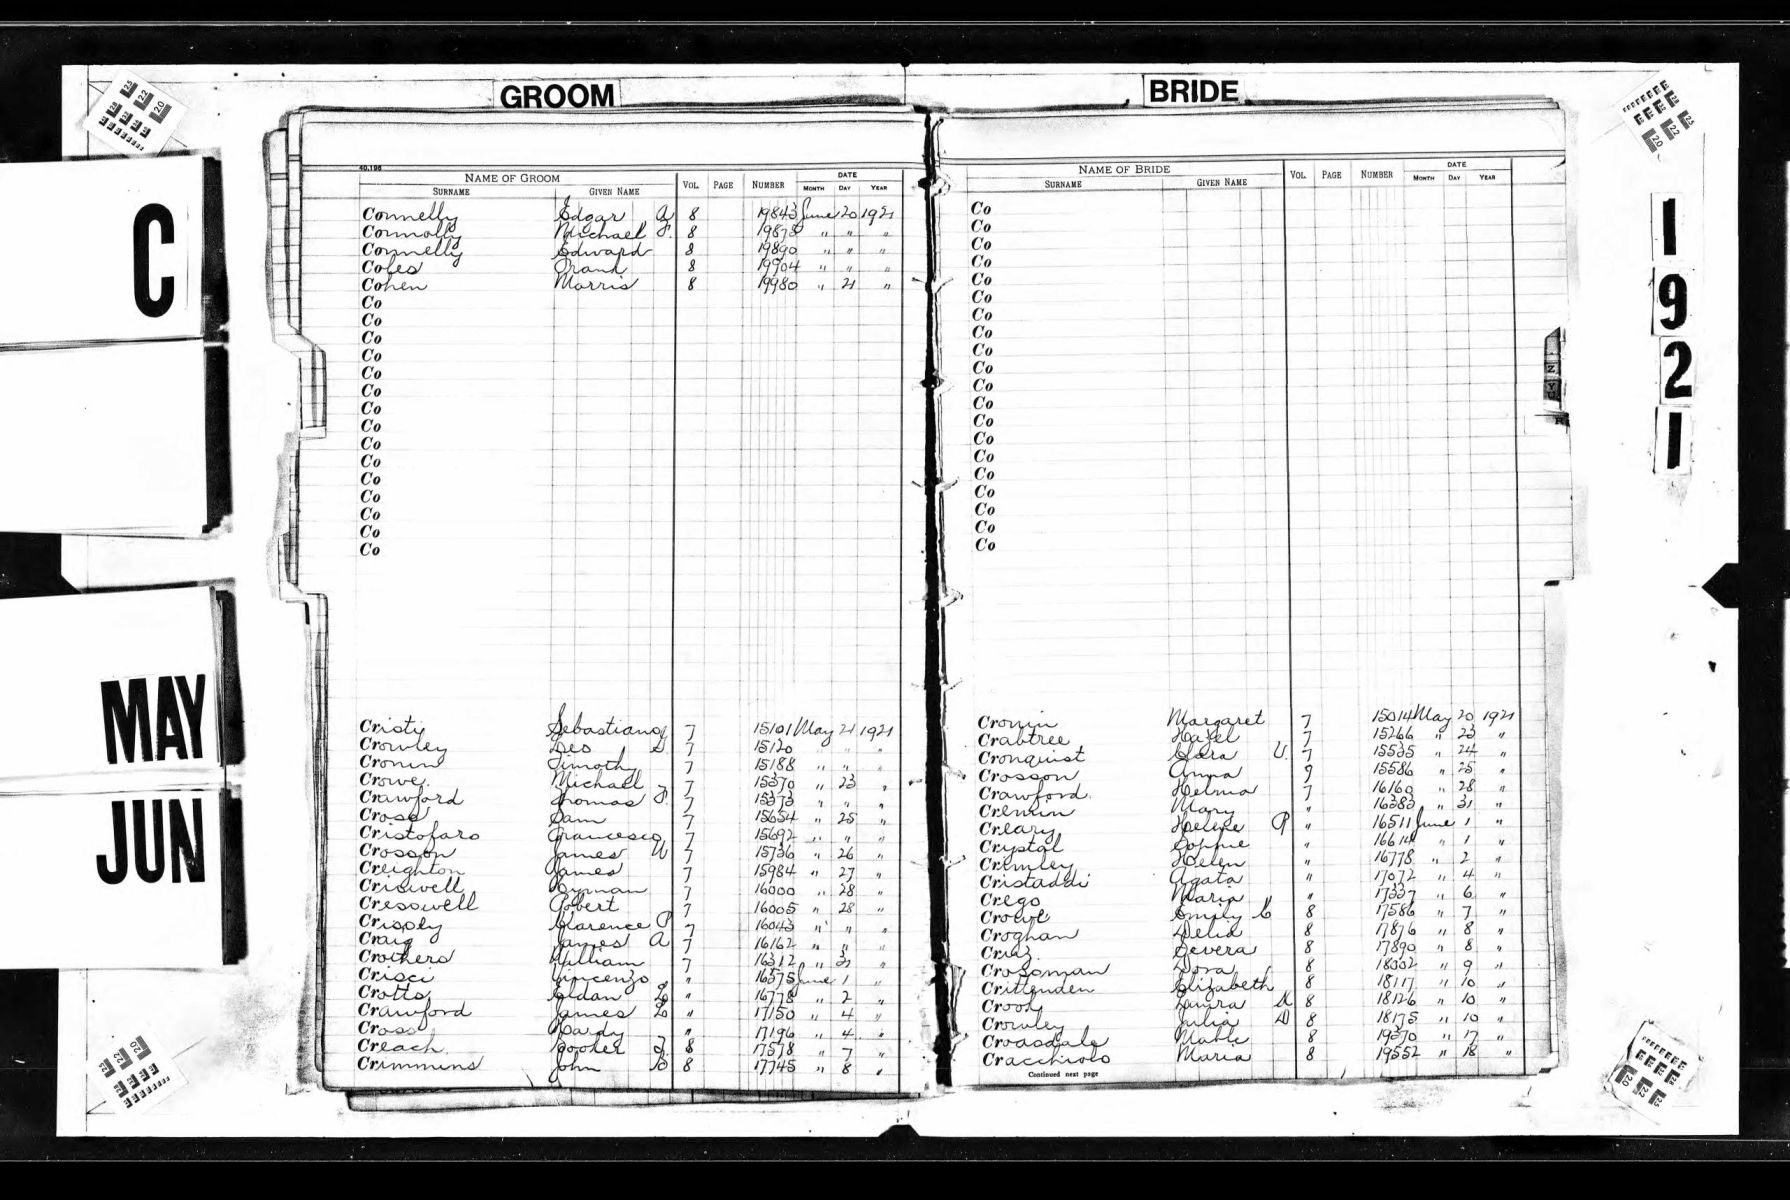 GROOM
BRIDE
C
1921
MAY
JUN
40,196
NAME OF GROOM
SURNAME GIVEN NAME VOL PAGE NUMBER DATE MONTH DAY YEAR
Connelly Edgar A 8 19843 June 20 1921
Connolly Michael F. 8 19875 " " "
Connelly Edward 8 19890 " " "
Coles Frank 8 19904 " " "
Cohen Morris 8 19980 " 21 "
Co
Co
Co
Co
Co
Co
Co
Co
Co
Co
Co
Co
Co
Co
Co
Cristy Sebastiano 7 15101 May 21 1921
Crowley Leo 7 15120 " " "
Cronin Timothy 7 15188 " " "
Crowe Michael 7 15370 " 23 "
Crawford Thomas F. 7 15373 " " "
Cross Sam 7 15654 " 25 "
Cristofaro Francesco 7 15692 " " "
Crosson James W 7 15736 " 26 "
Creighton James 7 15984 " 27 "
Criswell Hyman 7 16000 " 28 "
Cresswell Robert 7 16005 " 28 "
Crisply Clarence P 7 16043 " " "
Craig James A 7 16162 " " "
Crothers William 7 16312 " 31 "
Crisci Vincenzo " 16575 June 1 "
Crotts Eldan L " 16778 " 2 "
Crawford James L " 17150 " 4 "
Cross Hardy " 17196 " 4 "
Creach Booker T 8 17578 " 7 "
Crimmins John B 8 17745 " 8 "
NAME OF BRIDE
SURNAME GIVEN NAME VOL PAGE NUMBER DATE MONTH DAY YEAR
Co
Co
Co
Co
Co
Co
Co
Co
Co
Co
Co
Co
Co
Co
Co
Co
Co
Co
Co
Co
Cronin Margaret 7 15014 May 20 1921
Crabtree Hazel 7 15266 " 23 "
Cronquist Clara V. 7 15535 " 24 "
Crosson Anna 7 15586 " 25 "
Crawford Helma 7 16160 " 28 "
Cremin Mary " 16383 " 31 "
Creary Helene P " 16511 June 1 "
Crystal Sophie " 16614 " 1 "
Crimley Helen " 16778 " 2 "
Cristaddi Agata " 17072 " 4 "
Crego Maria " 17337 " 6 "
Crowe Emily C 8 17586 " 7 "
Croghan Delia 8 17876 " 8 "
Cruz Severa 8 17890 " 8 "
Crossman Dora 8 18002 " 9 "
Crittenden Elizabeth 8 18117 " 10 "
Crook Laura A 8 18126 " 10 "
Crowley Julia D 8 18175 " 10 "
Croasdale Mable 8 19370 " 17 "
Cracchiolo Maria 8 19552 " 18 "
Continued next page